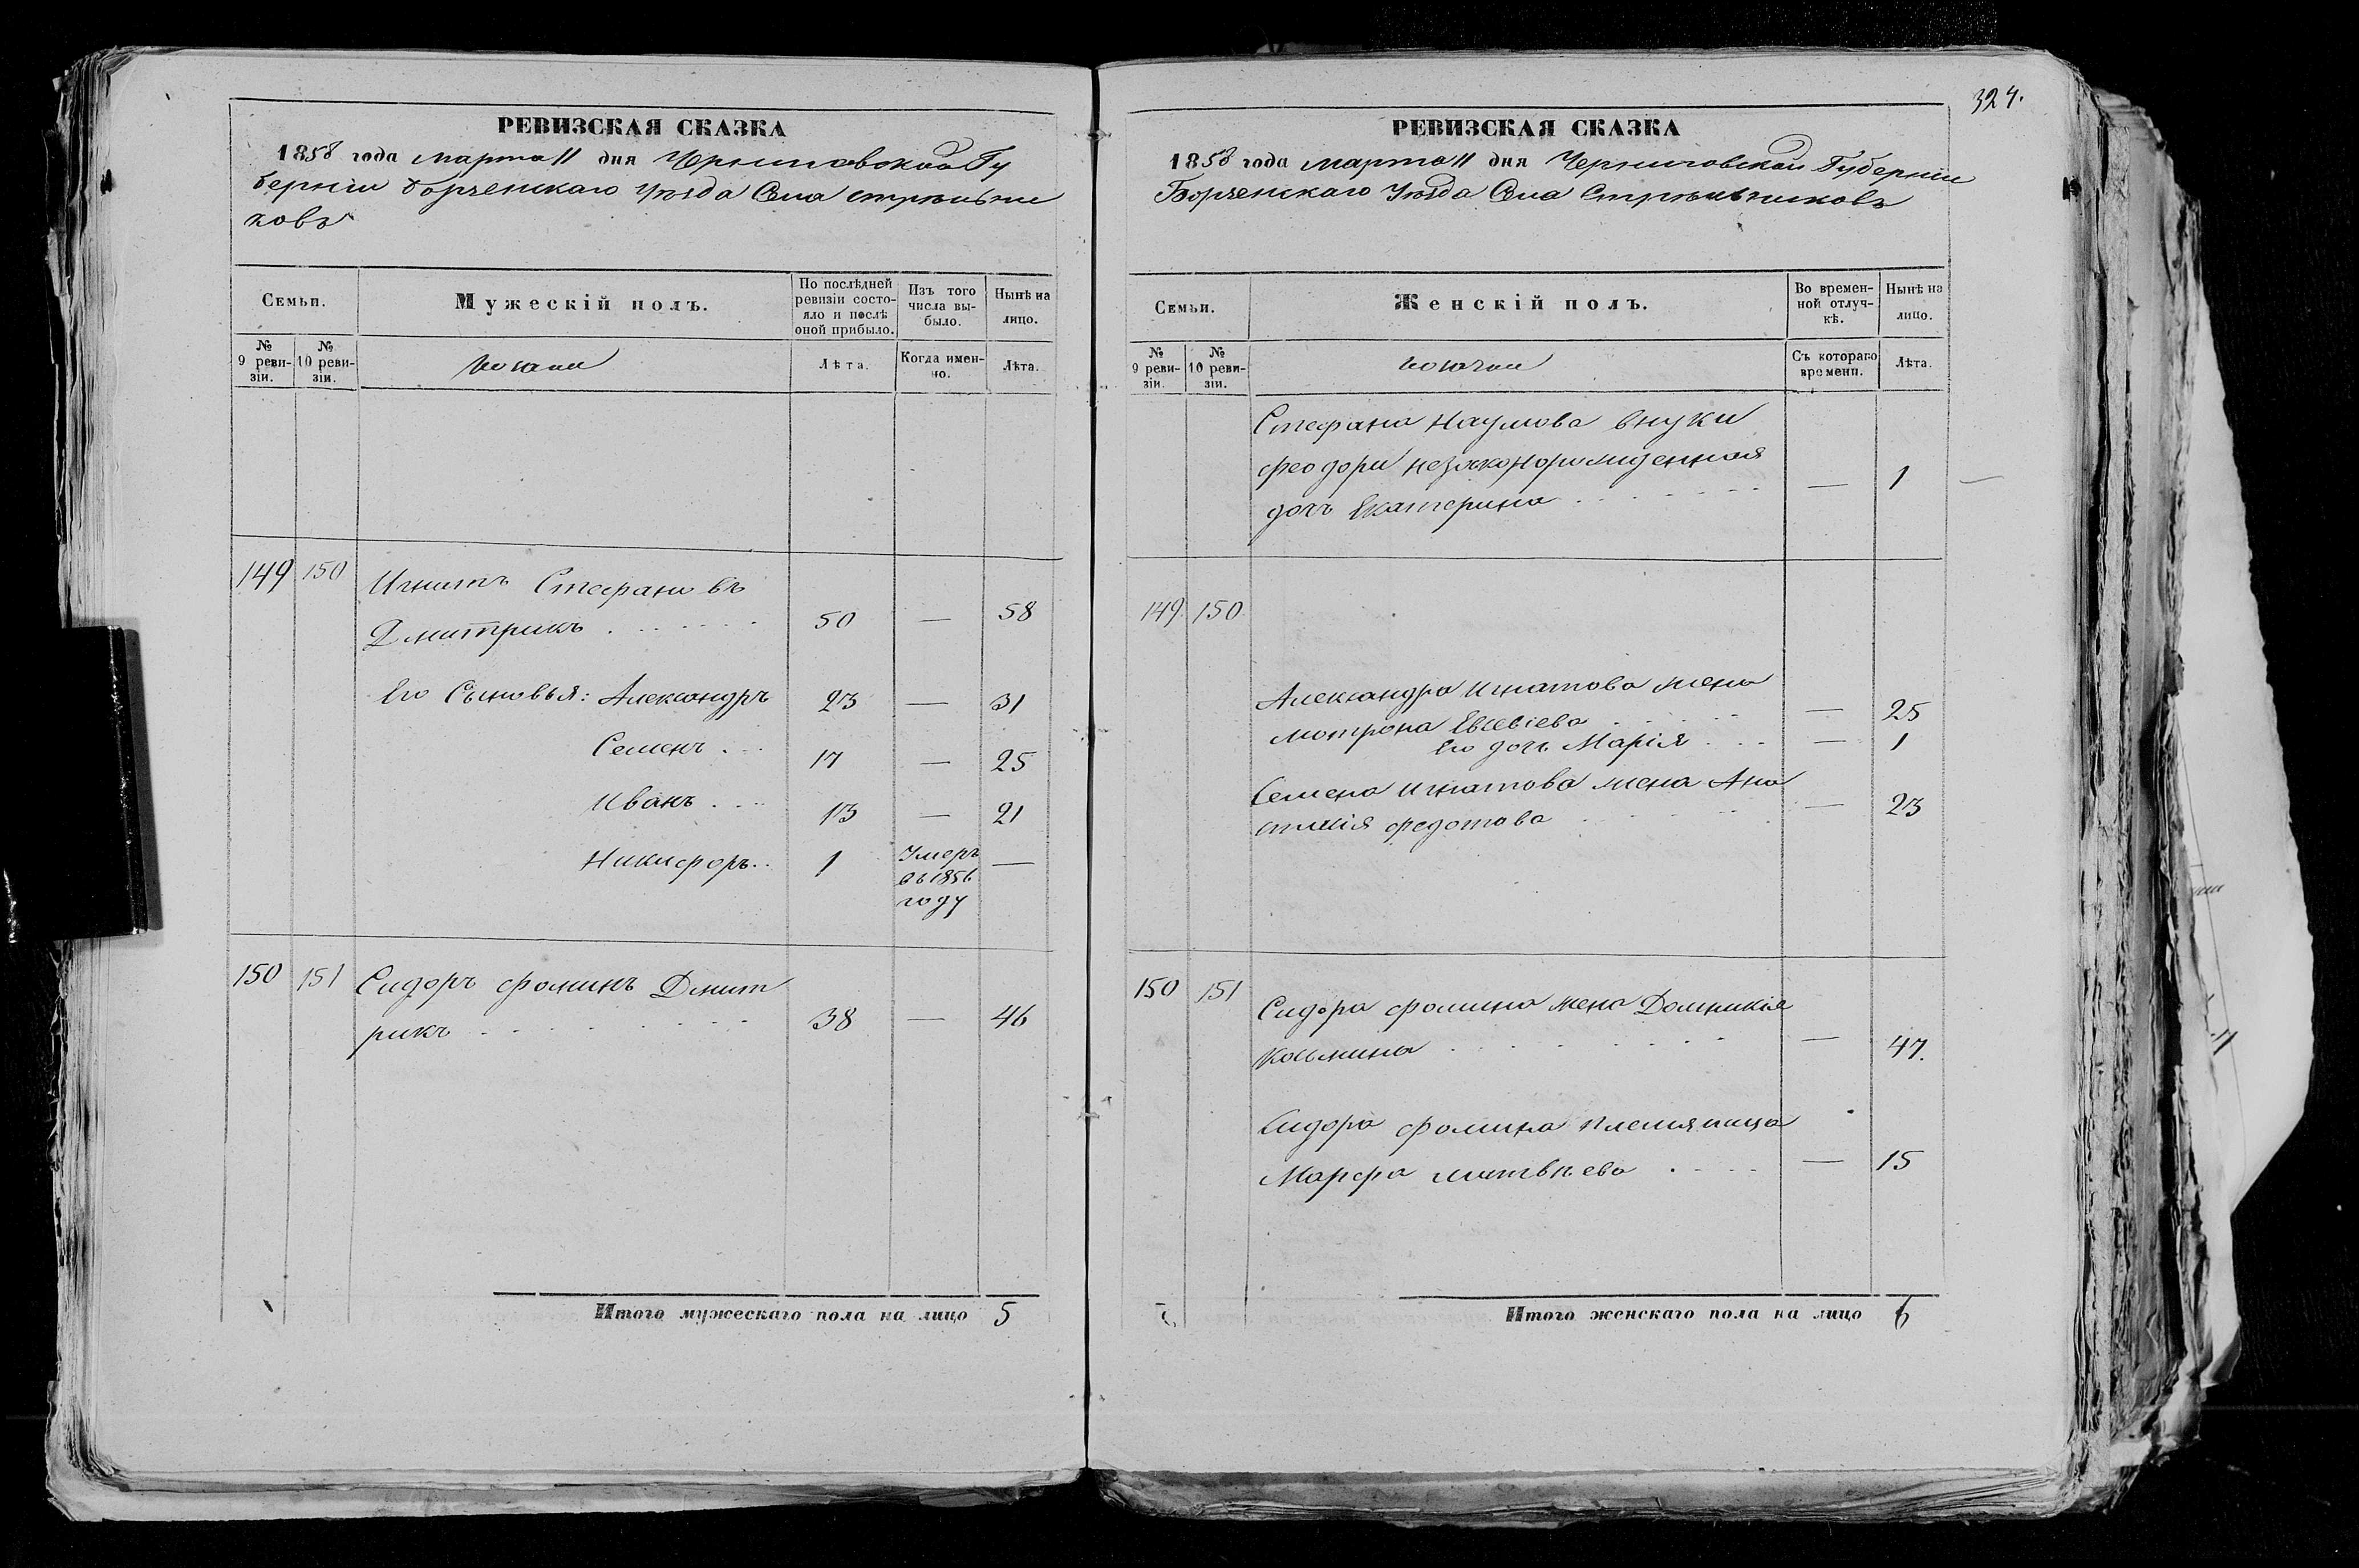 324.
РЕВИЗСКАЯ СКАЗКА
1858 года Марта 11 дня Черниговской Гу
берніи Борзенскаго Уѣзда Села Стрѣльни
ковъ
Семьи.
Мужескій полъ.
По послѣдней ревизіи состояло и послѣ оной прибыло.
Изъ того числа выбыло.
Нынѣ на лицо.
№ 9 ревизіи.
№ 10 ревизіи.
козаки
Лѣта.
Когда именно.
Лѣта.
149 150 Игнатъ Стефановъ
Дмитрикъ . . . . . . 50 — 58
Его Сыновья: Александръ 23 — 31
Семенъ . . . 17 — 25
Иванъ . . . 13 — 21
Никифоръ . . 1 Умеръ —
въ 1856
году
150 151 Сидоръ Фоминъ Дмит
рикъ . . . . . . . 38 — 46
Итого мужескаго пола на лицо 5
РЕВИЗСКАЯ СКАЗКА
1858 года Марта 11 дня Черниговской Губерніи
Борзенскаго Уѣзда Села Стрѣльниковъ
Семьи.
Женскій полъ.
Во временной отлучкѣ.
Нынѣ на лицо.
№ 9 ревизіи.
№ 10 ревизіи.
козачки
Съ котораго времени.
Лѣта.
Стефана Наумова внуки
Феодоры незаконорожденная
дочь Екатерина . . . . . . . — 1
149 150
Александра Игнатова жена
Мотрона Евсевіева . . . . . — 25
Его дочь Марія . . . — 1
Семена Игнатова жена Ана
стасія Федотова . . . . . — 23
150 151
Сидора Фомина жена Домникія
Козьмина . . . . . . . . — 47.
Сидора Фомина племяница
Марфа Матвѣева . . . . — 15
Итого женскаго пола на лицо 6